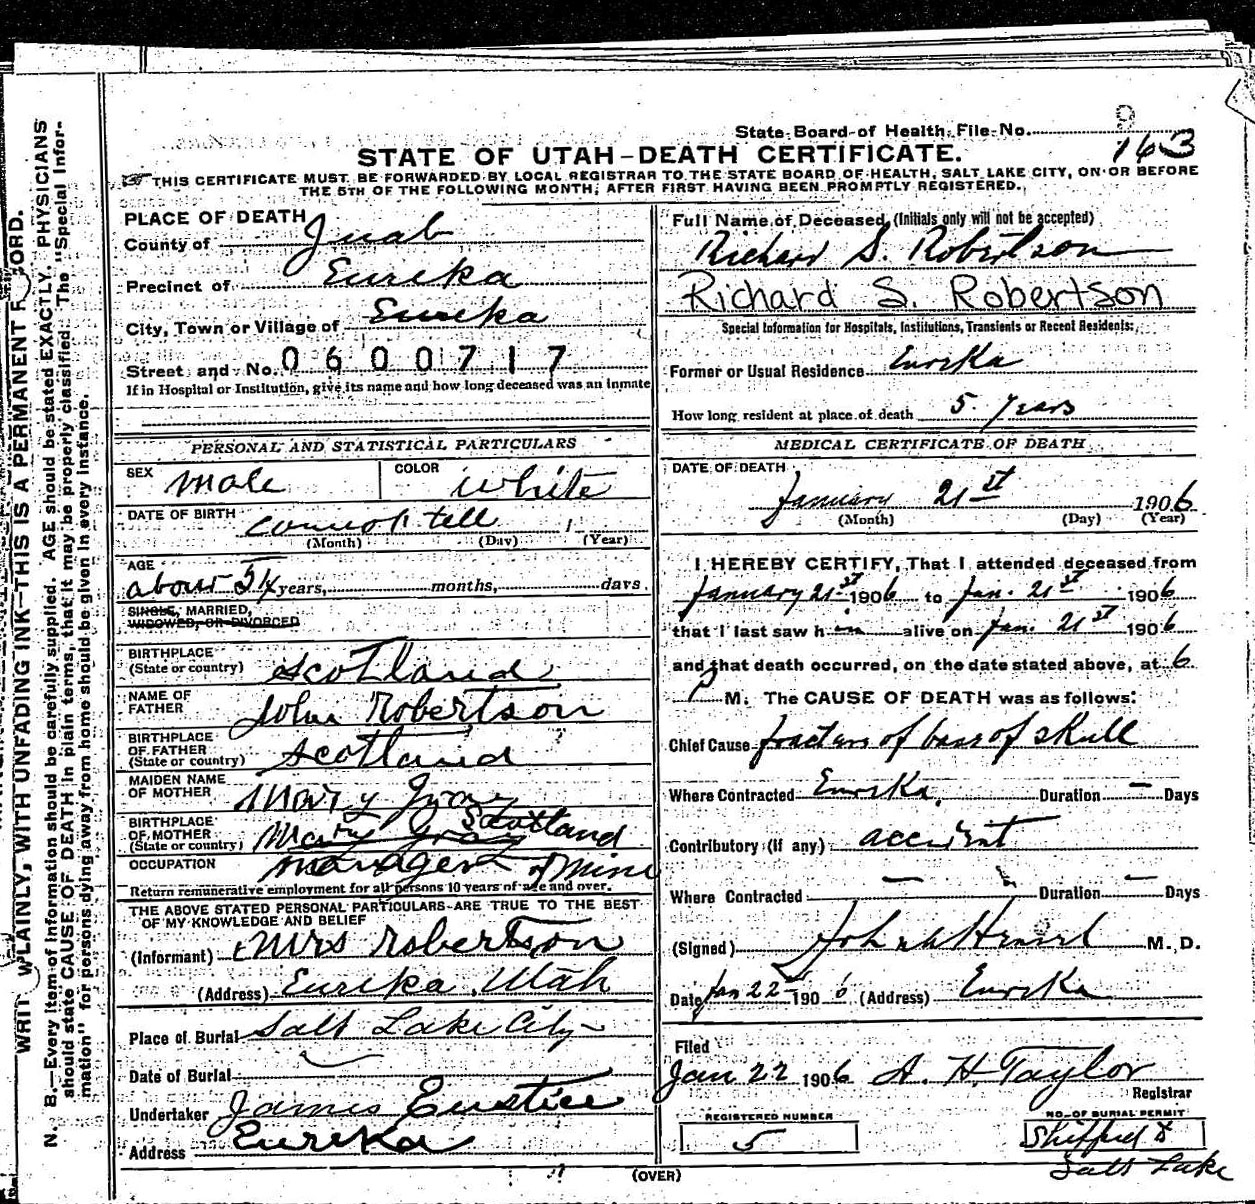 State Board of Health File No. 9
163
STATE OF UTAH-DEATH CERTIFICATE.
THIS CERTIFICATE MUST BE FORWARDED BY LOCAL REGISTRAR TO THE STATE BOARD OF HEALTH, SALT LAKE CITY, ON OR BEFORE
THE 5TH OF THE FOLLOWING MONTH, AFTER FIRST HAVING BEEN PROMPTLY REGISTERED.
PLACE OF DEATH
County of Juab
Precinct of Eureka
City, Town or Village of Eureka
Street and No. 0600717
If in Hospital or Institution, give its name and how long deceased was an inmate
PERSONAL AND STATISTICAL PARTICULARS
SEX male COLOR white
DATE OF BIRTH cannot tell
(Month) (Day) (Year)
AGE
about 54 years, months, days
SINGLE, MARRIED,
WIDOWED, OR DIVORCED
BIRTHPLACE
(State or country) Scotland
NAME OF
FATHER John Robertson
BIRTHPLACE
OF FATHER
(State or country) Scotland
MAIDEN NAME
OF MOTHER Mary Gray
BIRTHPLACE
OF MOTHER
(State or country) Mary Gray Scotland
OCCUPATION manager of mine
Return remunerative employment for all persons 10 years of age and over.
THE ABOVE STATED PERSONAL PARTICULARS ARE TRUE TO THE BEST
OF MY KNOWLEDGE AND BELIEF
(Informant) Mrs Robertson
(Address) Eureka, Utah
Place of Burial Salt Lake City
Date of Burial
Undertaker James Eustice
Address Eureka
Full Name of Deceased (Initials only will not be accepted)
Richard S. Robertson
Richard S. Robertson
Special Information for Hospitals, Institutions, Transients or Recent Residents:
Former or Usual Residence Eureka
How long resident at place of death 5 years
MEDICAL CERTIFICATE OF DEATH
DATE OF DEATH
January 21st 1906
(Month) (Day) (Year)
I HEREBY CERTIFY, That I attended deceased from
January 21st 1906 to Jan. 21st 1906
that I last saw him alive on Jan. 21st 1906
and that death occurred, on the date stated above, at 6
P M. The CAUSE OF DEATH was as follows:
Chief Cause fracture of base of skull
Where Contracted Eureka, Duration — Days
Contributory (If any) accident
Where Contracted — Duration — Days
(Signed) M. D.
Date Jan 22nd 1906 (Address) Eureka
Filed
Jan 22 1906 A. H. Taylor
Registrar
REGISTERED NUMBER
5
NO. OF BURIAL PERMIT
Shipped to
Salt Lake
(OVER)
N. B.—Every item of information should be carefully supplied. AGE should be stated EXACTLY. PHYSICIANS
should state CAUSE OF DEATH in plain terms, that it may be properly classified. The "Special Infor-
mation" for persons dying away from home should be given in every instance.
WRIT PLAINLY, WITH UNFADING INK—THIS IS A PERMANENT R ORD.